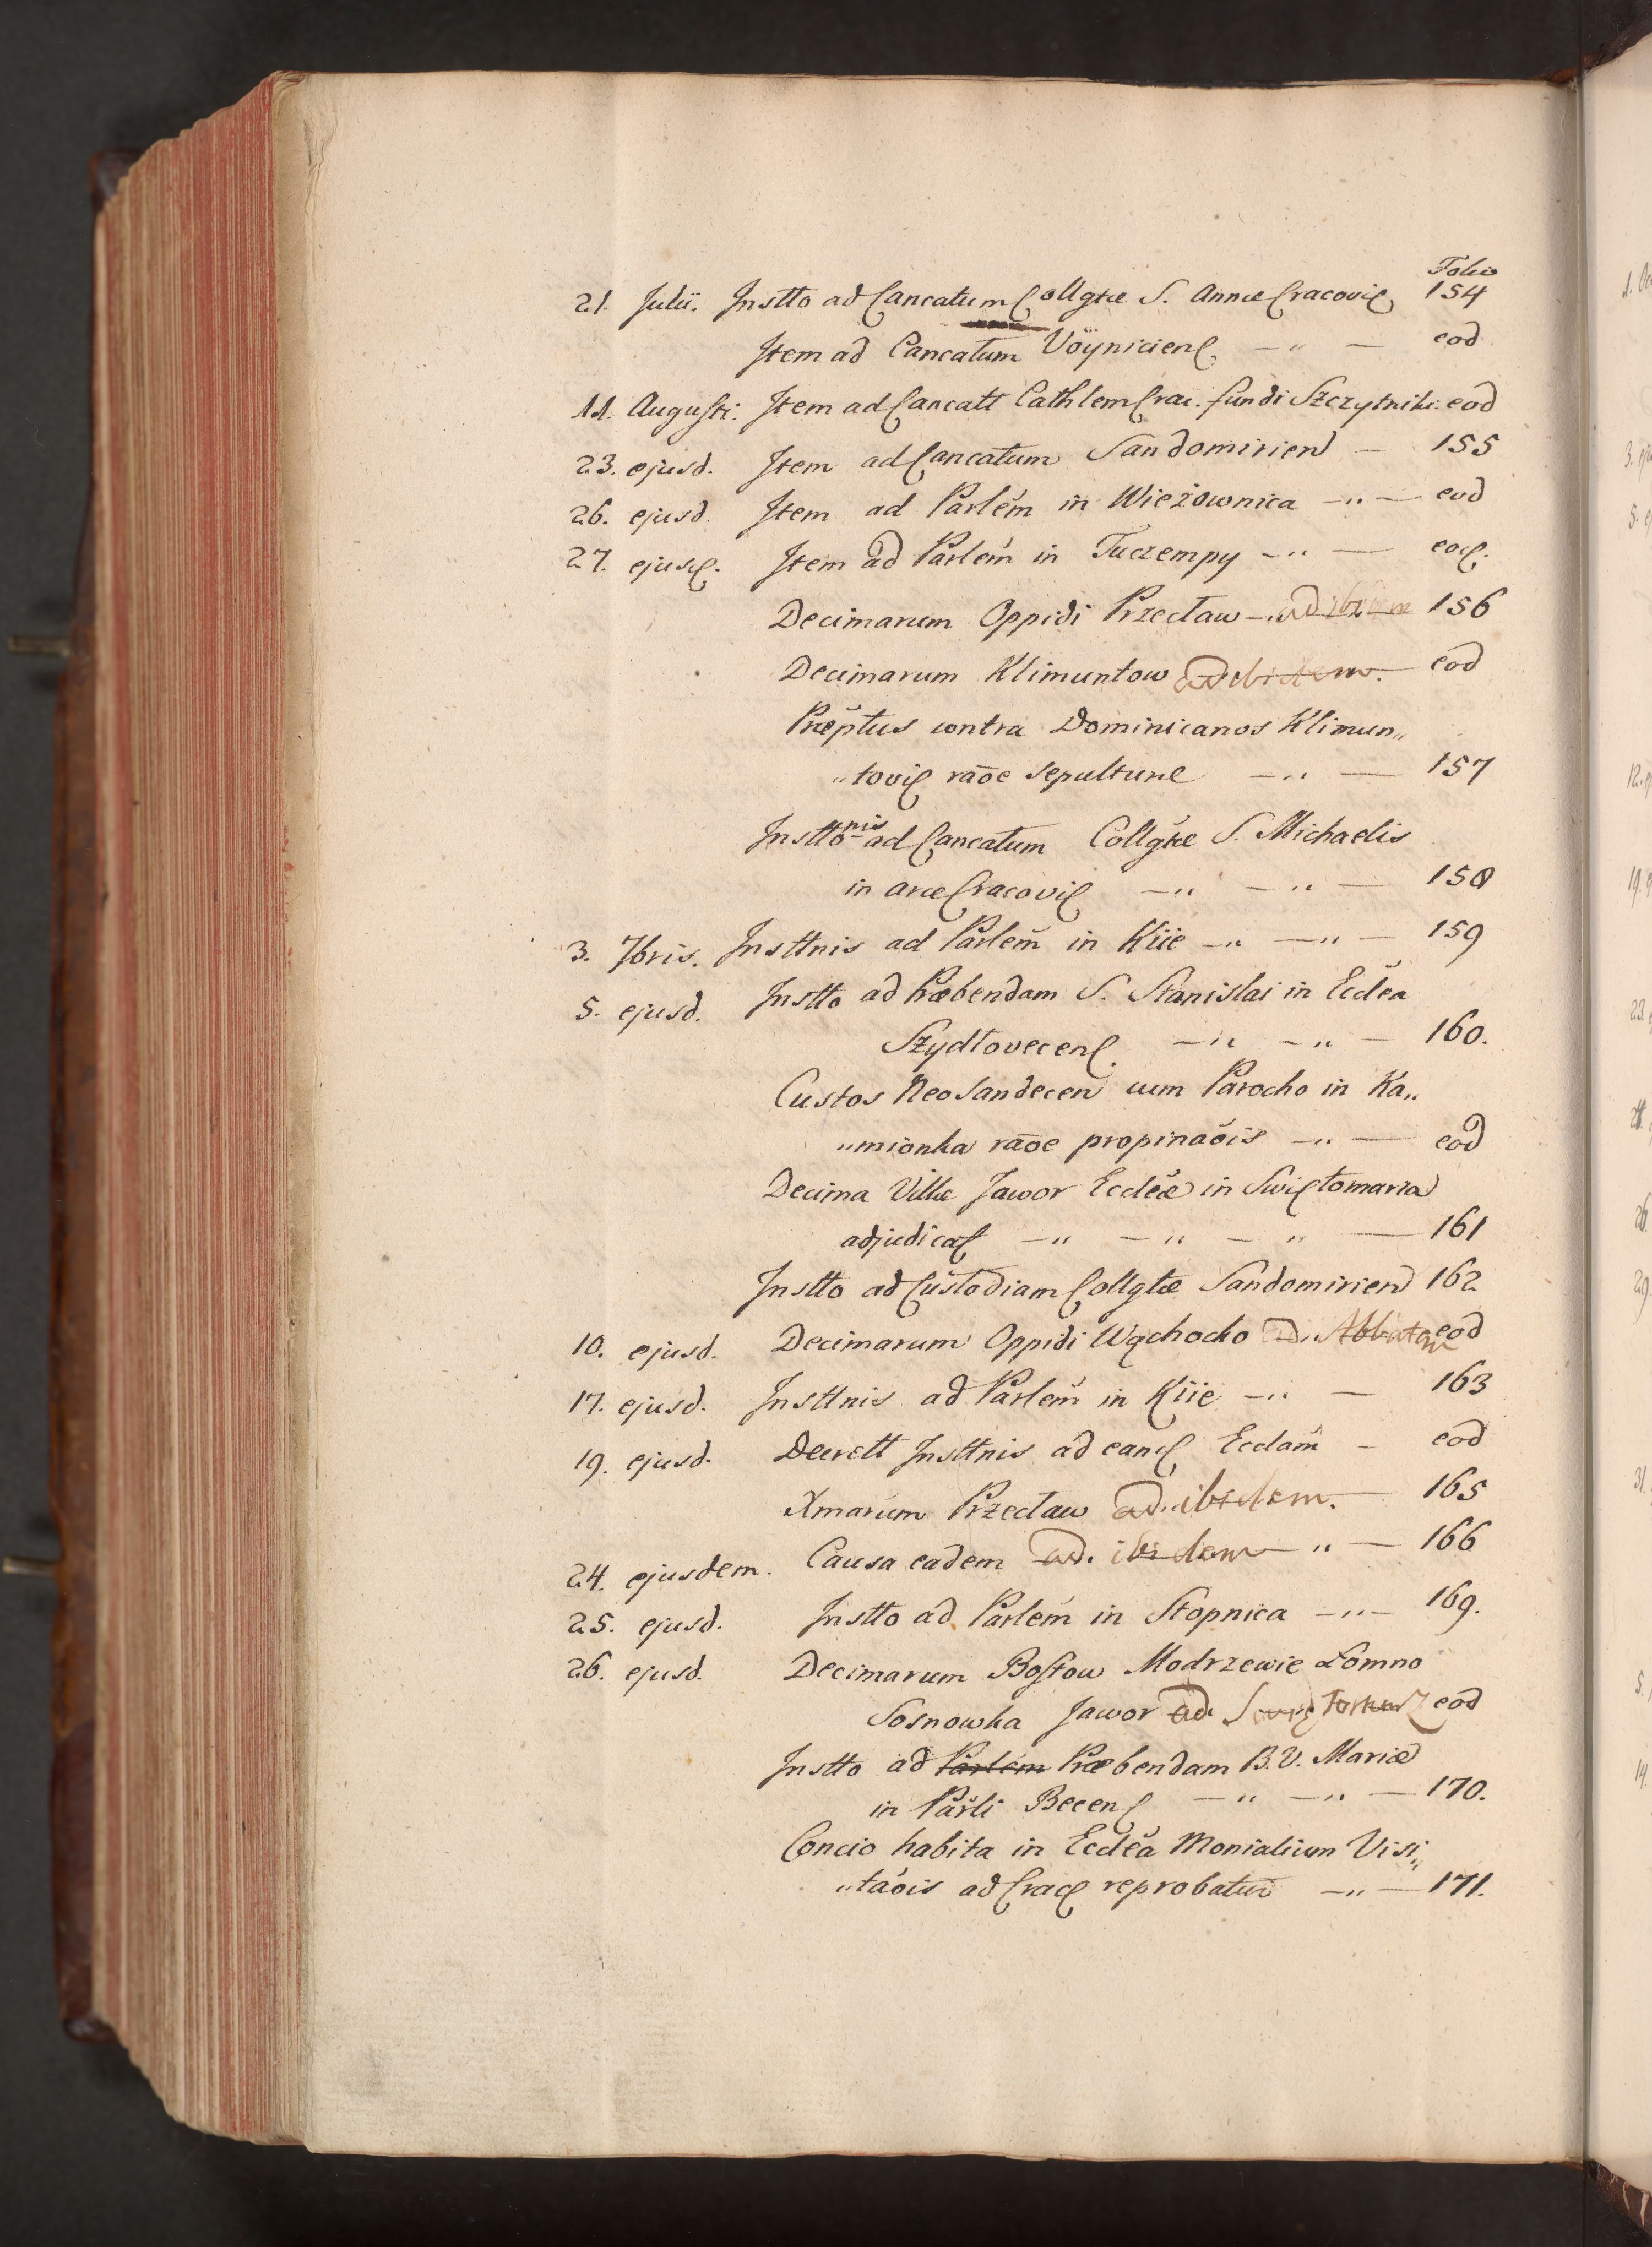 Folio
21. Julii. Jnstto ad Cancatum Collgtæ S. Annæ Cracovień 154
Jtem ad Cancatum Voynicień. —„— eod
11. Augusti. Jtem ad Cancatt Cathlem Crac. fundi Szczytniki. eod
23. ejusd. Jtem ad Cancatum Sandomirien — 155
26. ejusd. Jtem ad Parlem in Wieżownica —„— eod
27. ejusd. Jtem ad Parlem in Tuczempy —„— eod.
Decimarum Oppidi Przecław ad ibidem 156
Decimarum Klimuntow ad ibidem. eod
Præptus contra Dominicanos Klimun„
„tovien raoe sepulturæ —„— 157
Jnsttonis ad Cancatum Collgtæ S. Michaelis
in arce Cracovien —„—„— 158
3. 7bris. Jnsttnis ad Parlem in Kiie —„—„— 159
5. ejusd. Jnstto ad Præbendam S. Stanislai in Ecclea
Szydłovecen. —„—„— 160.
Custos Neosandecen cum Parocho in Ka„
„mionka raoe propinaois —„— eod
Decima Villæ Jawor Eccleæ in Swiętomarza
adjudicat —„—„—„— 161
Jnstto ad Custodiam Collgtæ Sandomirien 162
10. ejusd. Decimarum Oppidi Wąchocko ad. Abbatem eod
17. ejusd. Jnsttnis ad Parlem in Kiie —„— 163
19. ejusd. Decrett Jnsttnis ad eand Ecclam — eod
Xmarum Przecław ad. ibidem. — 165
24. ejusdem. Causa eadem ad. ibidem „— 166
25. ejusd. Jnstto ad Parlem in Stopnica —„— 169.
26. ejusd. Decimarum Bostow Modrzewie Łomno
Sosnowka Jawor ad eod
Jnstto ad Parlem Præbendam B. V. Mariæ
in Parli Becen —„—„— 170.
Concio habita in Ecclea Monialium Visi„
„taois ad Crac reprobatur —„— 171.